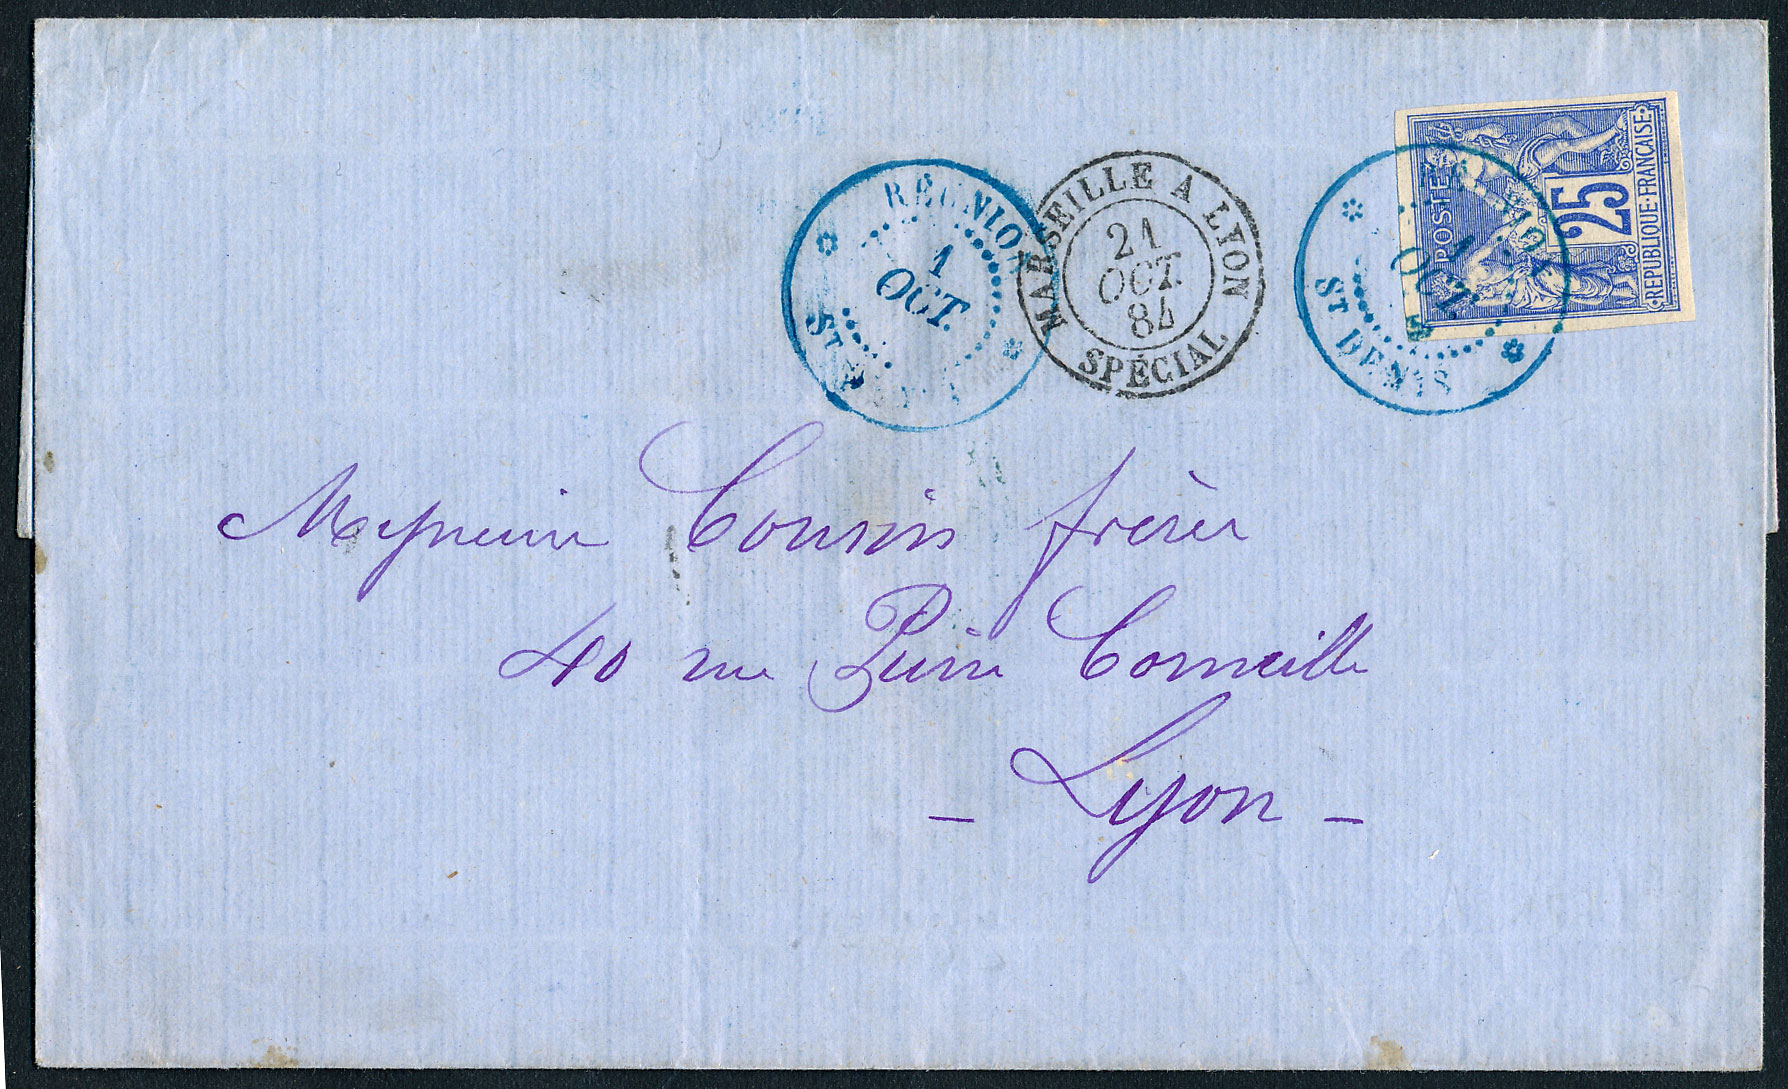 RÉUNION
1
OCT.
ST DENIS
MARSEILLE A LYON
21
OCT.
84
SPÉCIAL
OCT.
ST DENIS
POSTES
25
REPUBLIQUE FRANCAISE
Messieurs Cousins frères
40 rue Pierre Corneille
- Lyon -